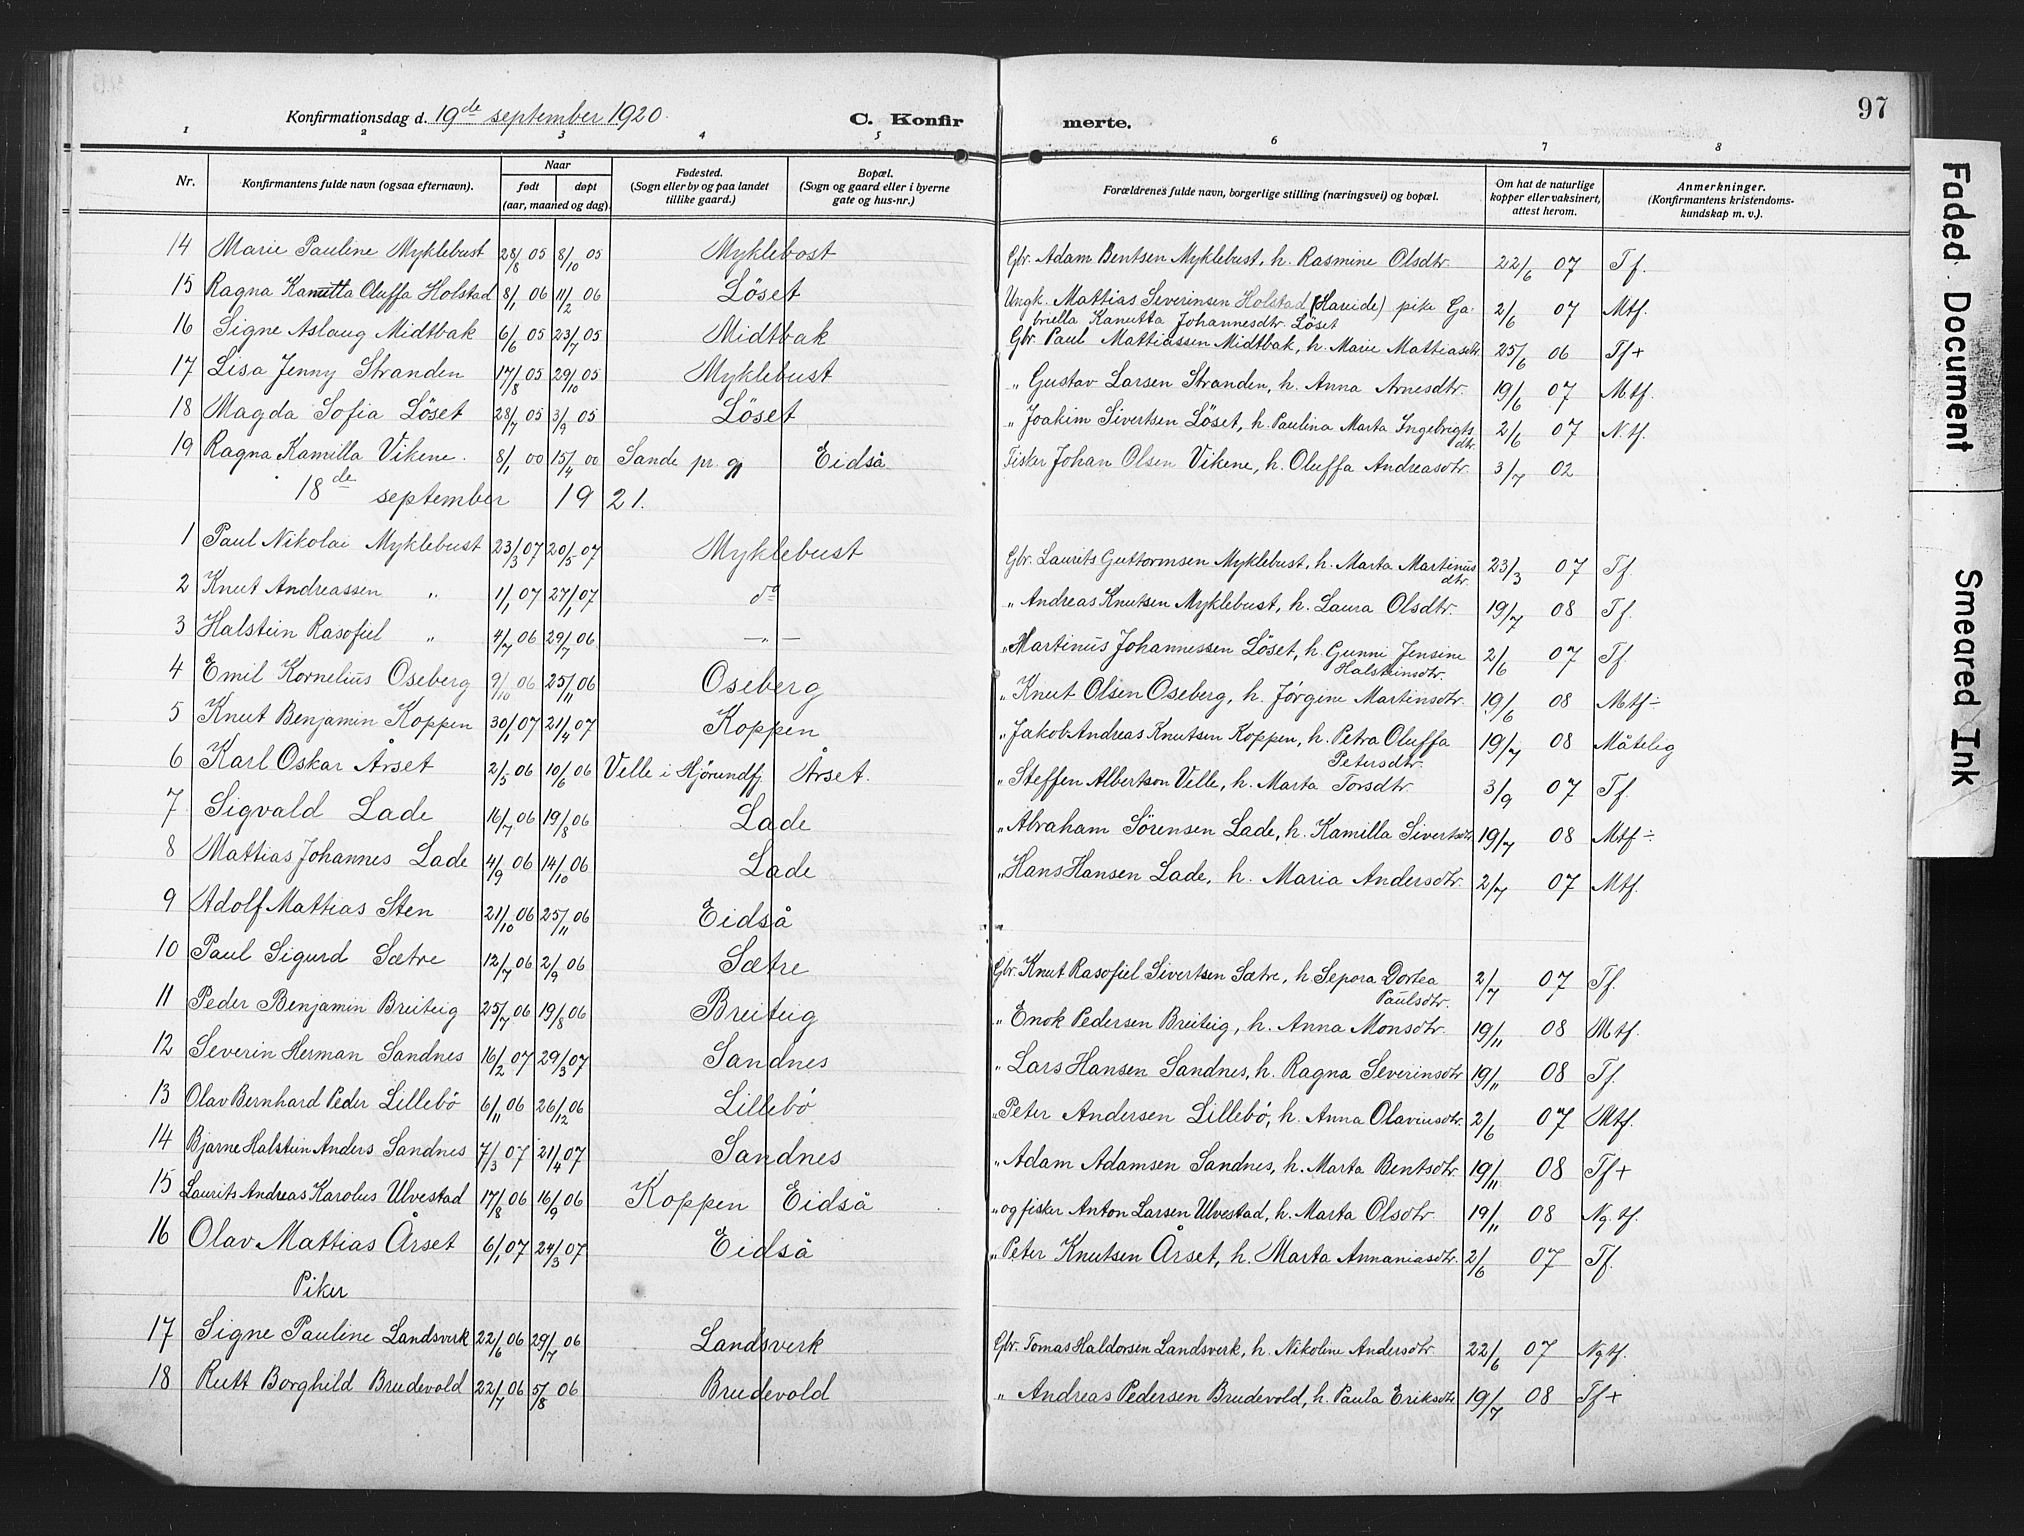 Konfirmationsdag d. 19de september 1920. C. Konfir merte. 97
1 2 3 4 5 6 7 8
Nr. Konfirmantens fulde navn (ogsaa efternavn). Naar født døpt (aar, maaned og dag). Fødested. (Sogn eller by og paa landet tillike gaard.) Bopæl. (Sogn og gaard eller i byerne gate og hus-nr.) Forældrenes fulde navn, borgerlige stilling (næringsvei) og bopæl. Om hat de naturlige kopper eller vaksinert, attest herom. Anmerkninger. (Konfirmantens kristendoms-kundskap m. v.).
14 Marie Pauline Myklebust 28/8 05 8/10 05 Myklebost Gbr. Adam Bentsen Myklebust, h. Rasmine Olsdtr. 22/6 07 Tf.
15 Ragna Kanutta Oluffa Holstad 8/1 06 11/2 06 Löset Ungk. Mattias Severinsen Holstad (Hareide) pike Ga-
briella Kanutta Johannesdtr. Löset 2/6 07 Mtf.
16 Signe Aslaug Midtbak 6/6 05 23/7 05 Midtbak Gbr. Paul Mattiassen Midtbak, h. Marie Mattiasdtr. 25/6 06 Tf+
17 Lisa Jenny Stranden 17/8 05 29/10 05 Myklebust " Gustav Larsen Stranden, h. Anna Arnesdtr. 19/6 07 Mtf.
18 Magda Sofia Löset 28/7 05 3/9 05 Löset " Joakim Sivertsen Löset, h. Paulina Marta Ingebrigts
dtr. 2/6 07 N.tf.
19 Ragna Kamilla Vikene. 8/1 00 15/4 00 Sande pr. gj Eidså Fisker Johan Olsen Vikene, h. Oluffa Andreasdtr. 3/7 02
18de september 1921.
1 Paul Nikolai Myklebust 23/3 07 20/5 07 Myklebust Gbr. Laurits Guttormsen Myklebust, h. Marta Martinus
dtr. 23/3 07 Tf.
2 Knut Andreassen " 1/1 07 27/1 07 do " Andreas Knutsen Myklebust, h. Laura Olsdtr. 19/7 08 Tf.
3 Halstein Rasofiel " 4/7 06 29/7 06 — " — " Martinus Johannessen Löset, h. Gunni Jensine
Halsteinsdtr. 2/6 07 Tf.
4 Emil Kornelius Oseberg 9/10 06 25/11 06 Oseberg " Knut Olsen Oseberg, h. Jörgine Martinsdtr. 19/6 08 Mtf÷
5 Knut Benjamin Koppen 30/1 07 21/4 07 Koppen " Jakob Andreas Knutsen Koppen, h. Petra Oluffa
Petersdtr. 19/7 08 Måtelig
6 Karl Oskar Årset 2/5 06 10/6 06 Velle i Hjörundfj. Årset. " Steffen Albertson Velle, h. Marta Torsdtr. 3/9 07 Tf.
7 Sigvald Lade 16/7 06 19/8 06 Lade " Abraham Sörensen Lade, h. Kamilla Sivertsdtr. 19/7 08 Mtf÷
8 Mattias Johannes Lade 4/9 06 14/10 06 Lade " Hans Hansen Lade, h. Maria Andersdtr. 2/7 07 Mtf.
9 Adolf Mattias Sten 21/10 06 25/11 06 Eidså
10 Paul Sigurd Sætre 12/7 06 2/9 06 Sætre Gbr. Knut Rasofiel Sivertsen Sætre, h Sepora Dortea
Paulsdtr. 2/7 07 Tf.
11 Peder Benjamin Breiteig 25/7 06 19/8 06 Breiteig " Enok Pedersen Breiteig, h. Anna Monsdtr. 19/11 08 Mtf.
12 Severin Herman Sandnes 16/2 07 29/3 07 Sandnes " Lars Hansen Sandnes, h. Ragna Severinsdtr 19/11 08 Tf.
13 Olav Bernhard Peder Lillebö 6/11 06 26/12 06 Lillebö " Peter Andersen Lillebö, h. Anna Olaviusdtr. 2/6 07 Mtf.
14 Bjarne Halstein Anders Sandnes 7/3 07 21/4 07 Sandnes " Adam Adamsen Sandnes, h. Marta Bentsdtr. 19/11 08 Tf+
15 Laurits Andreas Karolus Ulvestad 17/8 06 16/9 06 Koppen Eidså " og fisker Anton Larsen Ulvestad, h. Marta Olsdtr. 19/11 08 Ng. tf.
16 Olav Mattias Årset 6/1 07 24/3 07 Eidså " Peter Knutsen Årset, h. Marta Annaniasdtr. 2/6 07 Tf.
Piker
17 Signe Pauline Landsverk 22/6 06 29/7 06 Landsverk Gbr. Tomas Haldorsen Landsverk, h. Nikoline Andersdtr. 22/6 07 Ngtf.
18 Rutt Borghild Brudevold 22/7 06 5/8 06 Brudevold " Andreas Pedersen Brudevold, h. Paula Eriksdtr 19/7 08 Tf+
Faded Document
Smeared Ink